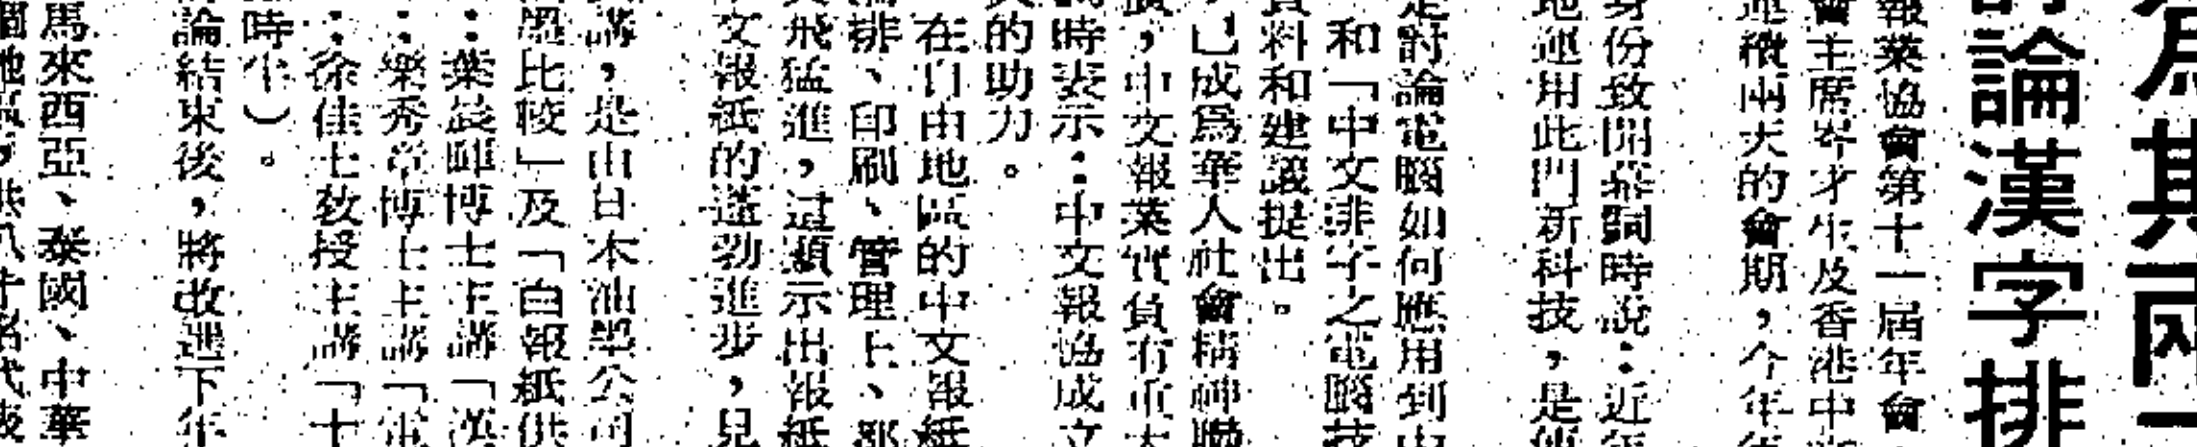 爲期兩
討論漢字排
報業協會第十一屆年會
會主席岑才生及香港中
連續兩天的會期，今年
身份致開幕詞時說：近
地運用此門新科技，是
是討論電腦如何應用到中
和「中文排字之電腦技
資料和建議提出。
已成爲華人社會精神聯
，中文報業實負有重大
時表示：中文報協成立
大的助力。
在自由地區的中文報紙
排、印刷、管理上、都
飛猛進，這顯示出報紙
文報紙的蓬勃進步，見
講，是由日本油墨公司
墨比較」及「白報紙供
：葉晨暉博士主講「漢
：樂秀章博士主講「電
：徐佳士敎授主講「十
時半）。
論結束後，將改選下年
馬來西亞、泰國、中華
個地區，共八十名代表